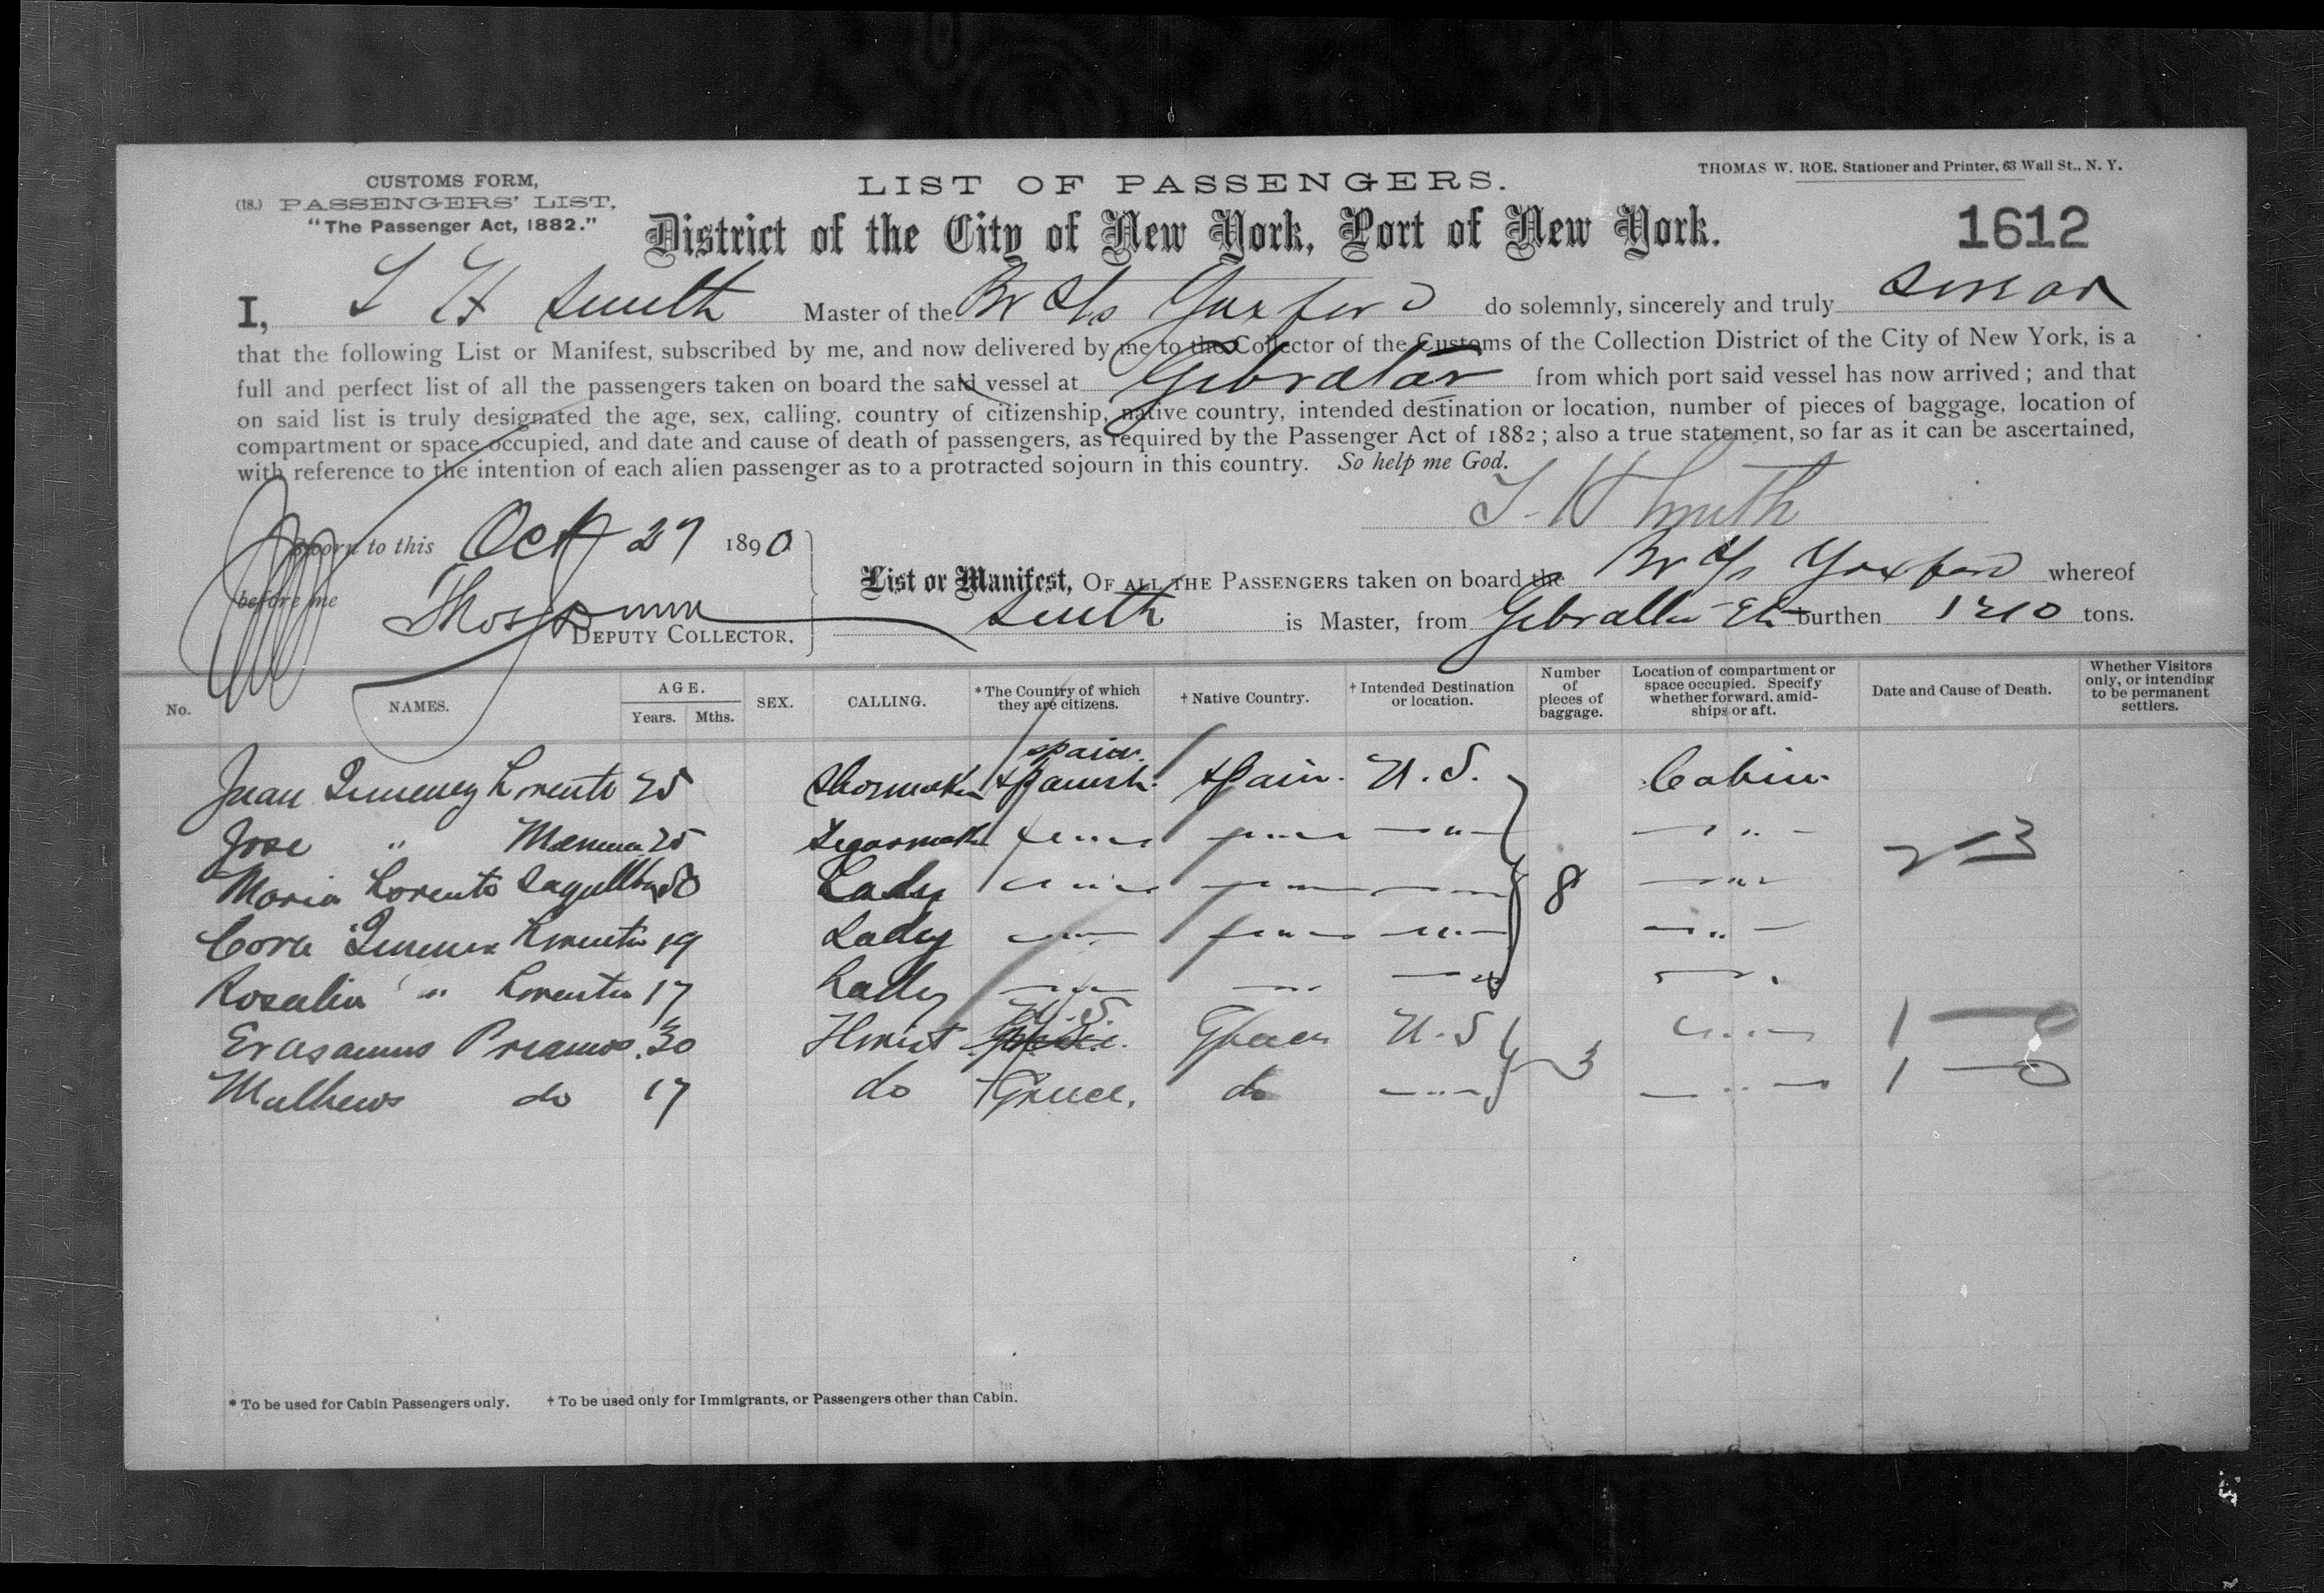 CUSTOMS FORM,
(18.) PASSENGERS' LIST,
"The Passenger Act, 1882."
LIST OF PASSENGERS.
THOMAS W. ROE. Stationer and Printer, 63 Wall St., N. Y.
District of the City of New York, Port of New York.
1612
I, T H Smith Master of the Br S/s Yoxford do solemnly, sincerely and truly swear
that the following List or Manifest, subscribed by me, and now delivered by me to the Collector of the Customs of the Collection District of the City of New York, is a
full and perfect list of all the passengers taken on board the said vessel at Gibraltar from which port said vessel has now arrived; and that
on said list is truly designated the age, sex, calling, country of citizenship, native country, intended destination or location, number of pieces of baggage, location of
compartment or space occupied, and date and cause of death of passengers, as required by the Passenger Act of 1882; also a true statement, so far as it can be ascertained,
with reference to the intention of each alien passenger as to a protracted sojourn in this country. So help me God.
T. H Smith
Sworn to this Oct 27 1890
before me
Thos
DEPUTY COLLECTOR.
List or Manifest, OF ALL THE PASSENGERS taken on board the Br S/s Yoxford whereof
Smith is Master, from Gibraltar burthen 1210 tons.
No. NAMES. AGE. Years. Mths. SEX. CALLING. * The Country of which they are citizens. † Native Country. † Intended Destination or location. Number of pieces of baggage. Location of compartment or space occupied. Specify whether forward, amidships or aft. Date and Cause of Death. Whether Visitors only, or intending to be permanent settlers.
Spain
Juan Jimenez Lorente 25 Shoemaker Spanish Spain. U.S. Cabin
Jose " 25 Segarmaker " " " "
Maria Lorente 50 Lady " " " 8 "
Jimenez Lorente 19 Lady " " " "
Rosalia " Lorente 17 Lady " " " "
U.S.
Erasamus Priamos 30 Florist Greece U.S 3 " 1 0
Mathews do 17 do Greece. do " " 1 0
* To be used for Cabin Passengers only. † To be used only for Immigrants, or Passengers other than Cabin.